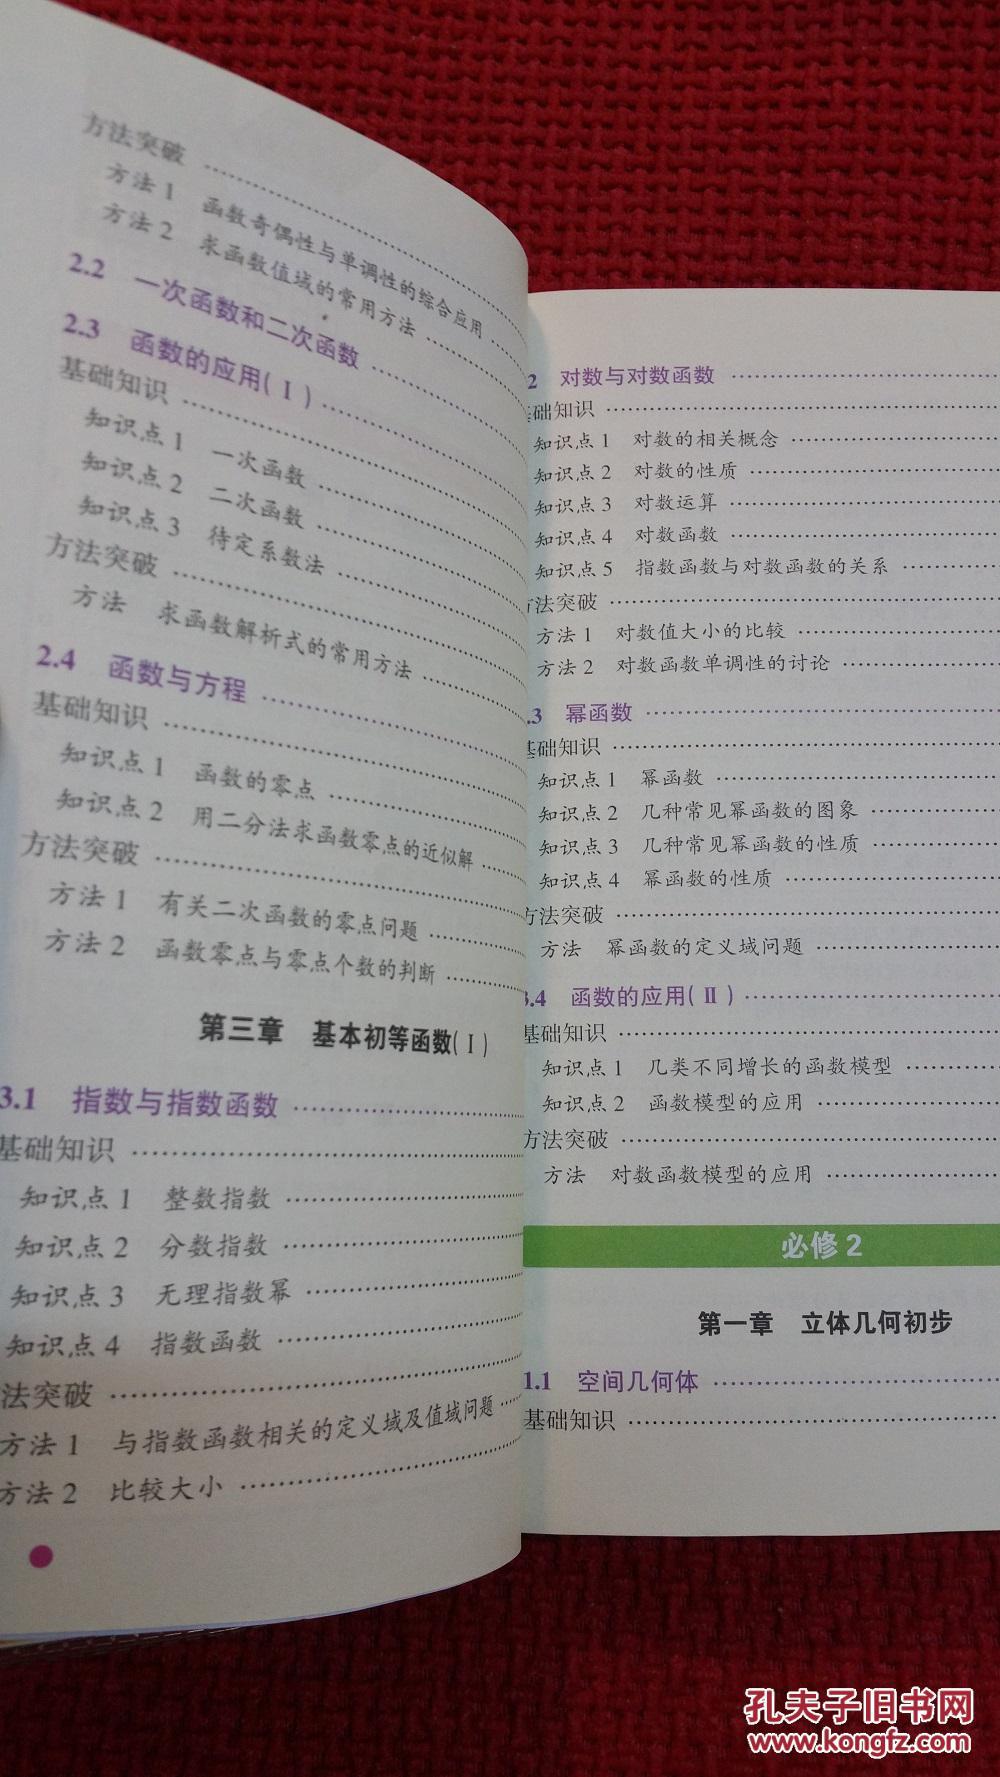 方法突破
方法1 函数奇偶性与单调性的综合应用
方法2 求函数值域的常用方法
2.2 一次函数和二次函数
2.3 函数的应用(Ⅰ)
基础知识
知识点1 一次函数
知识点2 二次函数
知识点3 待定系数法
方法突破
方法 求函数解析式的常用方法
2.4 函数与方程
基础知识
知识点1 函数的零点
知识点2 用二分法求函数零点的近似解
方法突破
方法1 有关二次函数的零点问题
方法2 函数零点与零点个数的判断
第三章 基本初等函数(Ⅰ)
3.1 指数与指数函数
基础知识
知识点1 整数指数
知识点2 分数指数
知识点3 无理指数幂
知识点4 指数函数
法突破
方法1 与指数函数相关的定义域及值域问题
方法2 比较大小
2 对数与对数函数
基础知识
知识点1 对数的相关概念
知识点2 对数的性质
知识点3 对数运算
知识点4 对数函数
知识点5 指数函数与对数函数的关系
方法突破
方法1 对数值大小的比较
方法2 对数函数单调性的讨论
.3 幂函数
基础知识
知识点1 幂函数
知识点2 几种常见幂函数的图象
知识点3 几种常见幂函数的性质
知识点4 幂函数的性质
方法突破
方法 幂函数的定义域问题
3.4 函数的应用(Ⅱ)
基础知识
知识点1 几类不同增长的函数模型
知识点2 函数模型的应用
方法突破
方法 对数函数模型的应用
必修2
第一章 立体几何初步
1.1 空间几何体
基础知识
孔夫子旧书网
www.kongfz.com